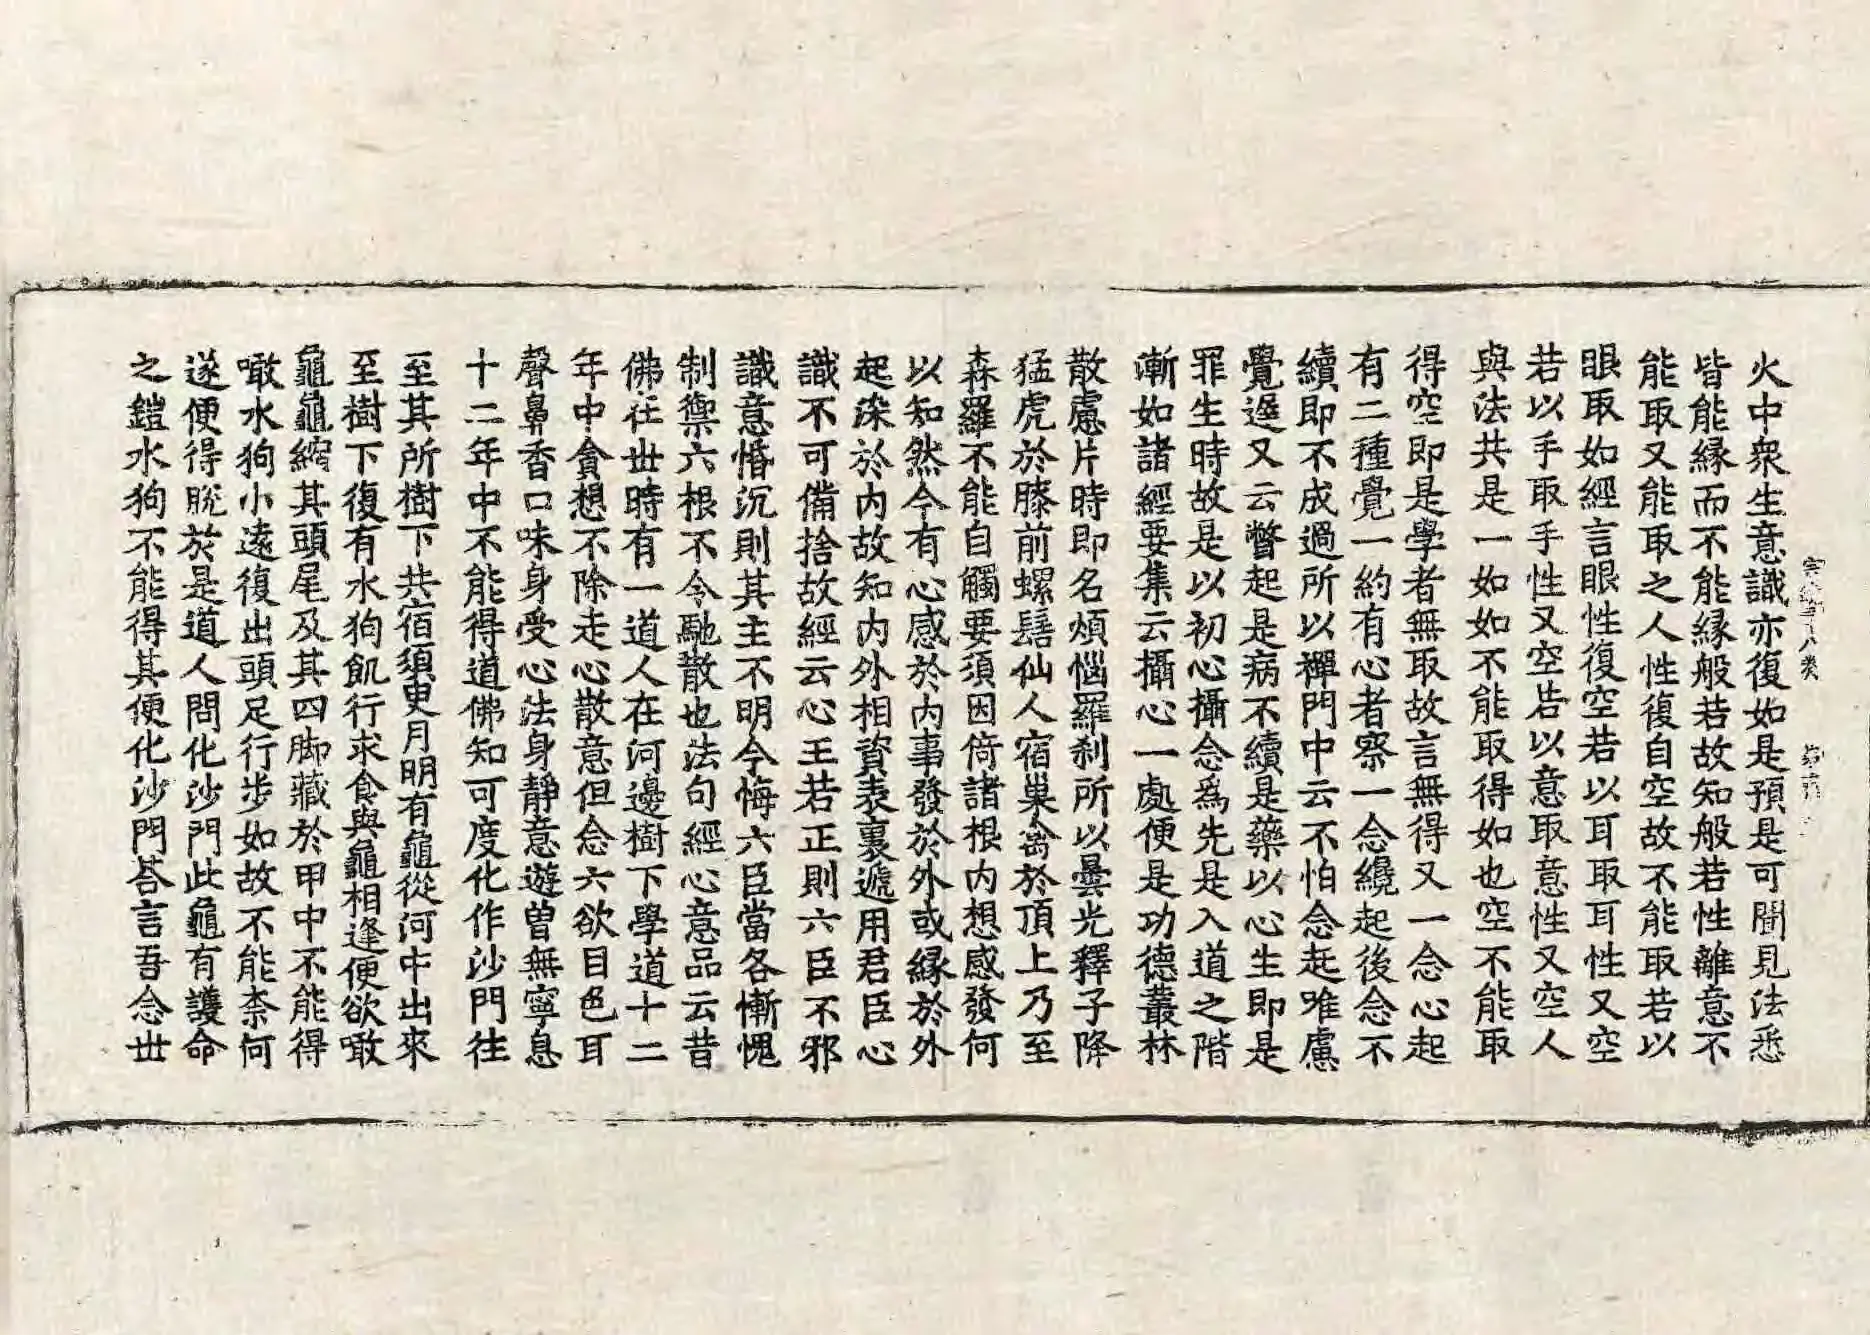 火中衆生意識亦復如是預是可聞見法悉
皆能緣而不能緣般若故知般若性離意不
能取又能取之人性復自空故不能取若以
眼取如經言眼性復空若以耳取耳性又空
若以手取手性又空若以意取意性又空人
與法共是一如如不能取得如也空不能取
得空即是學者無取故言無得又一念心起
有二種覺一約有心者察一念纔起後念不
續即不成過所以禪門中云不怕念起唯慮
覺遲又云瞥起是病不續是藥以心生即是
罪生時故是以初心攝念為先是入道之階
漸如諸經要集云攝心一處便是功德叢林
散慮片時即名煩惱羅刹所以曇光釋子降
猛虎於膝前螺髻仙人宿巢禽於頂上乃至
森羅不能自觸要須因倚諸根內想感發何
以知然今有心感於內事發於外或緣於外
起染於內故知內外相資表裏遞用君臣心
識不可備捨故經云心王若正則六臣不邪
識意惛沉則其主不明今悔六臣當各慚愧
制禦六根不令馳散也法句經心意品云昔
佛在世時有一道人在河邊樹下學道十二
年中貪想不除走心散意但念六欲目色耳
聲鼻香口味身受心法身靜意遊曾無寧息
十二年中不能得道佛知可度化作沙門往
至其所樹下共宿須臾月明有龜從河中出來
至樹下復有水狗飢行求食與龜相逢便欲噉
龜龜縮其頭尾及其四脚藏於甲中不能得
噉水狗小遠復出頭足行步如故不能柰何
遂便得脫於是道人問化沙門此龜有護命
之鎧水狗不能得其便化沙門荅言吾念世